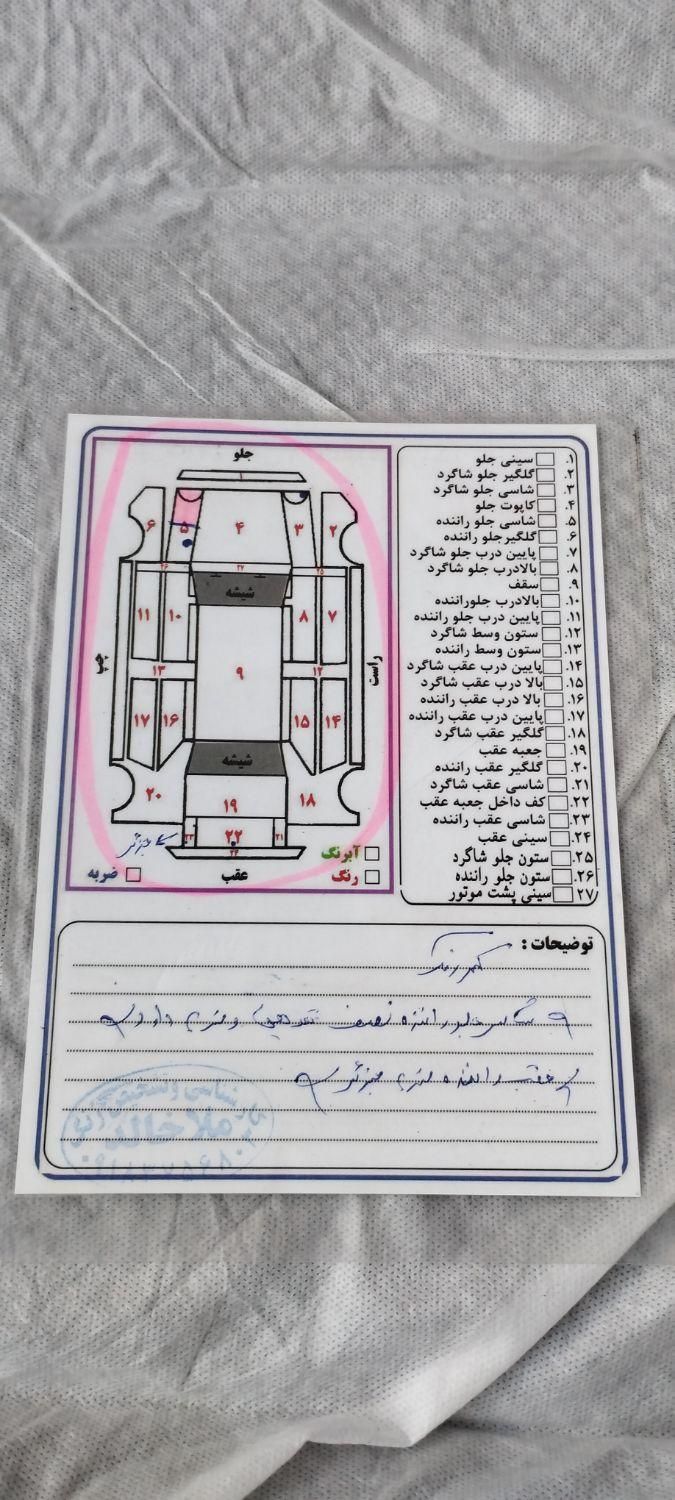 جلو
۱
۲
۳
۴
۵
۶
۲۵
۲۷
۲۶
شیشه
۷
۸
۹
۱۰
۱۱
راست
چپ
۱۲
۱۳
۱۴
۱۵
۱۶
۱۷
شیشه
۱۸
۱۹
۲۰
۲۱
۲۲
۲۳
۲۴
آبرنگ
رنگ
عقب
ضربه
۱. سینی جلو
۲. گلگیر جلو شاگرد
۳. شاسی جلو شاگرد
۴. کاپوت جلو
۵. شاسی جلو راننده
۶. گلگیرجلو راننده
۷. پایین درب جلو شاگرد
۸. بالادرب جلو شاگرد
۹. سقف
۱۰. بالادرب جلوراننده
۱۱. پایین درب جلو راننده
۱۲. ستون وسط شاگرد
۱۳. ستون وسط راننده
۱۴. پایین درب عقب شاگرد
۱۵. بالا درب عقب شاگرد
۱۶. بالا درب عقب راننده
۱۷. پایین درب عقب راننده
۱۸. گلگیر عقب شاگرد
۱۹. جعبه عقب
۲۰. گلگیر عقب راننده
۲۱. شاسی عقب شاگرد
۲۲. کف داخل جعبه عقب
۲۳. شاسی عقب راننده
۲۴. سینی عقب
۲۵. ستون جلو شاگرد
۲۶. ستون جلو راننده
۲۷. سینی پشت موتور
توضیحات :
راننده نصف
عقب راننده
کارشناسی و تشخیص رنگ
ملا خالد